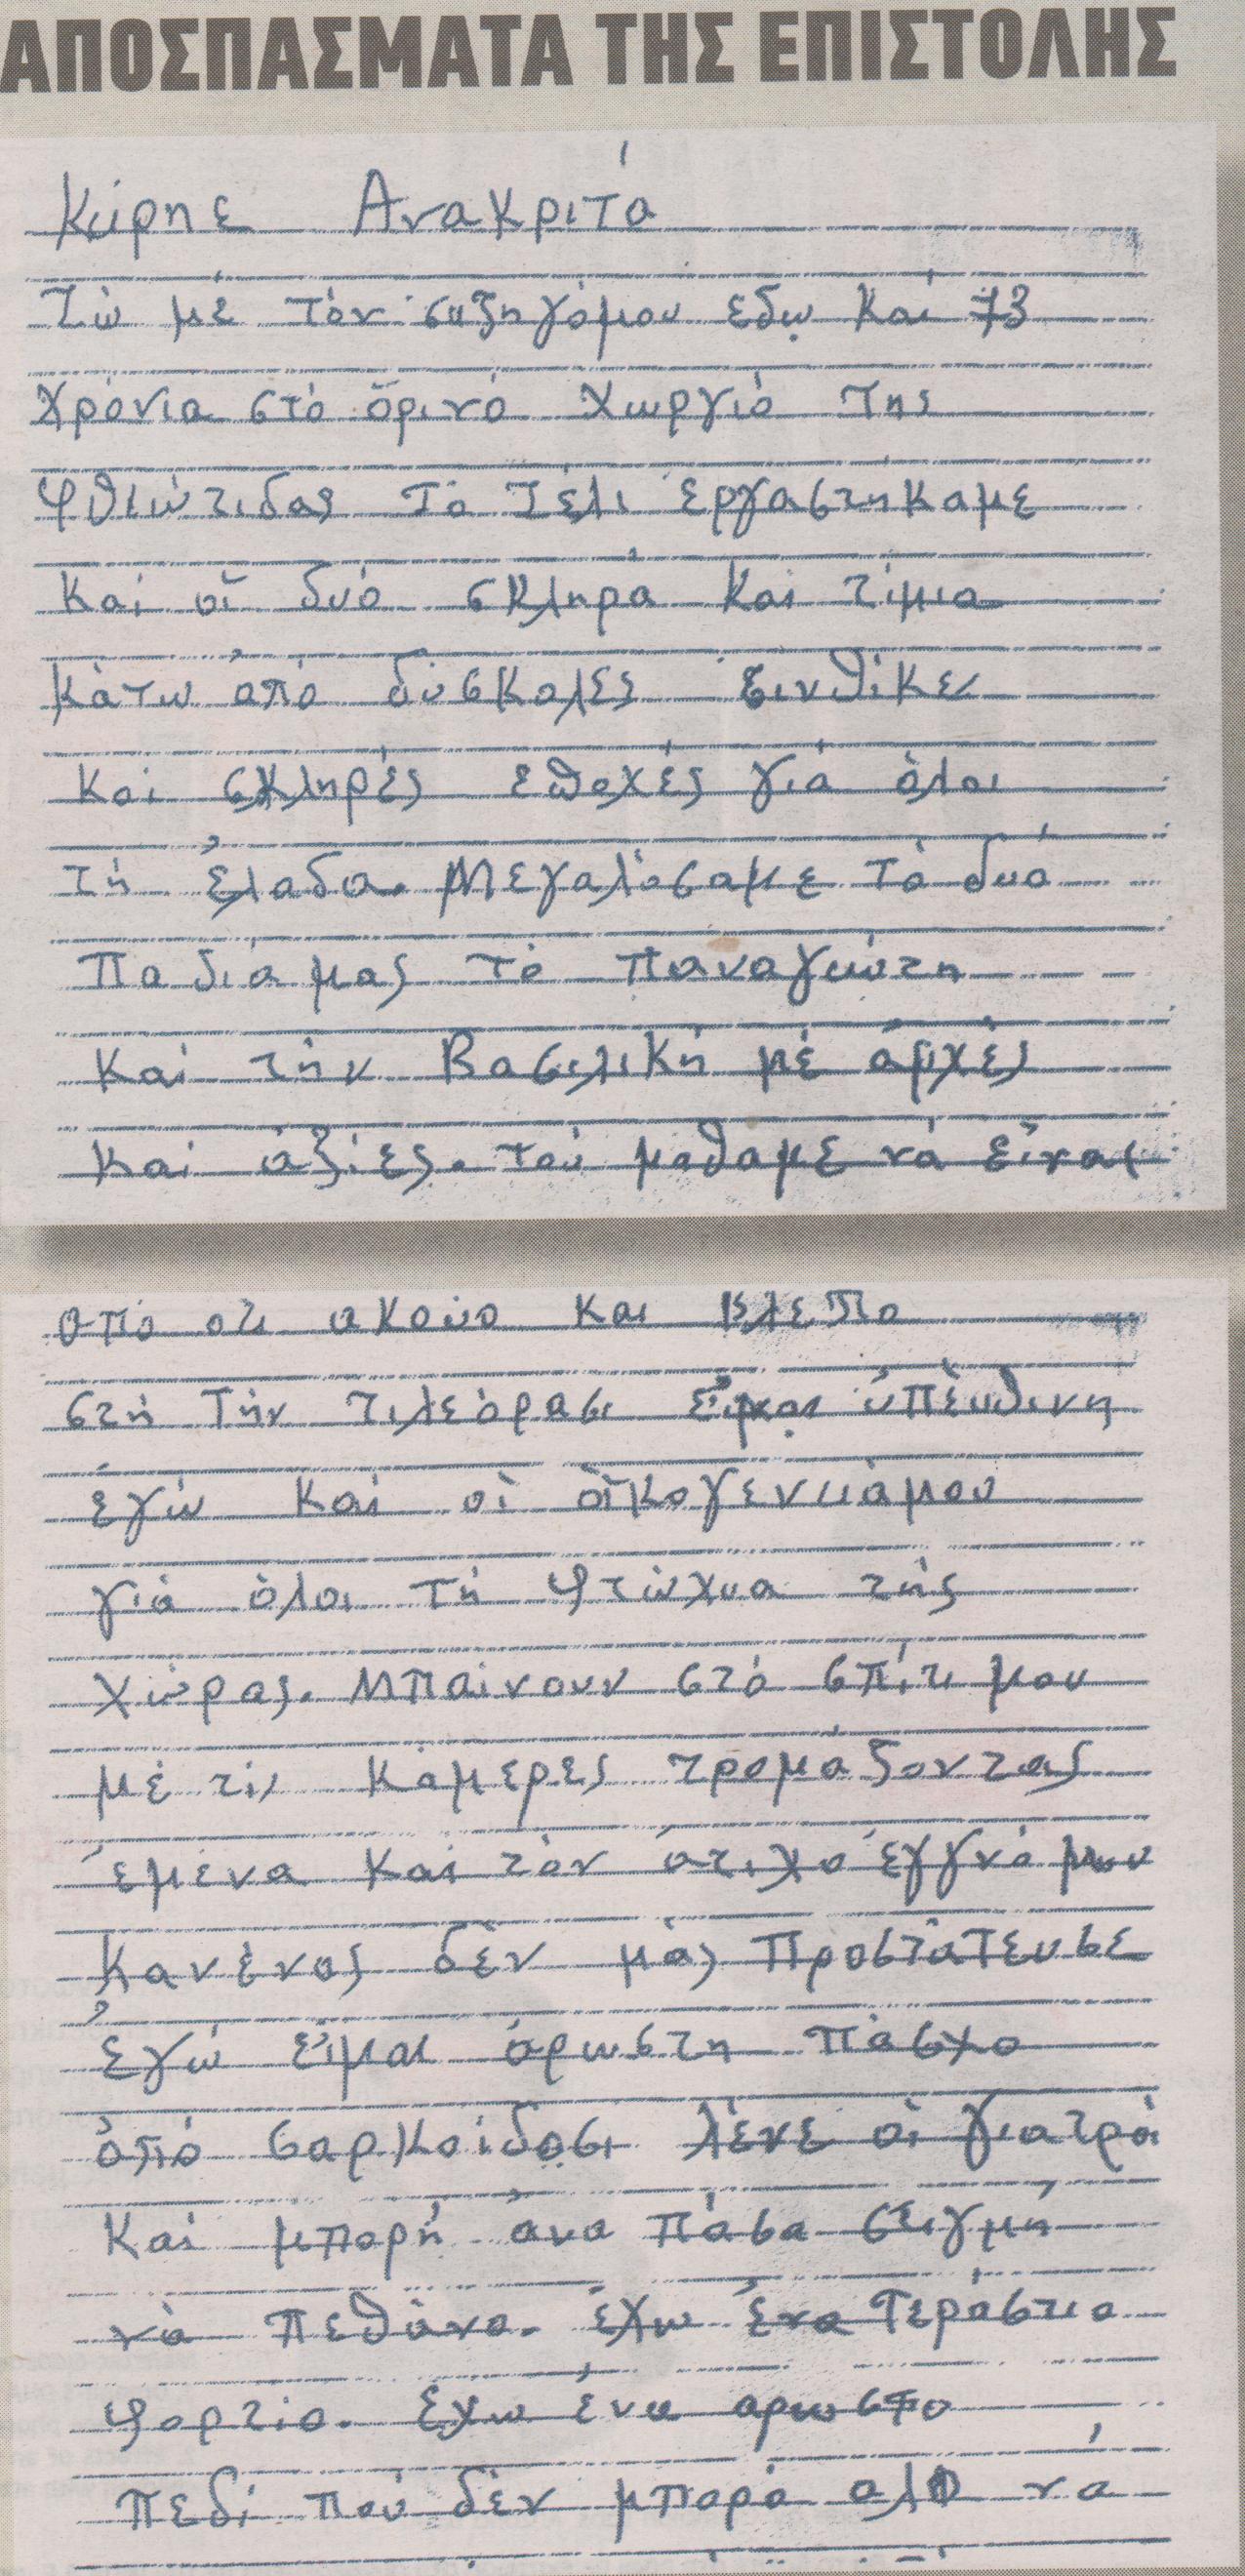 ΑΠΟΣΠΑΣΜΑΤΑ ΤΗΣ ΕΠΙΣΤΟΛΗΣ
Κύρηε Ανακριτά
Ζώ μέ τόν συζηγόμου εδω και 73
χρόνια στό ὀρινό χωργιό της
φθιώτιδας Τό Ζέλι έργαστηκαμε
και οἱ δυό σκληρά και τίμια
κάτω ἀπό δύσκολες ξινθίκει
και σκληρές εποχές γιά όλοι
τή ἑλαδα. Μεγαλόσαμε τά δυό
παδιά μας τό παναγιώτη
και τήν Βασιλική μέ άρχές
και άξίες. τού μαθαμε νά εἶναι
απο οτι ακούο και βλεπο
στή Τήν τιλεόρασι εἶμαι ὑπέυθινη
έγώ και οἱ οἰκογενιιάμου
γιά όλοι τή φτώχυα τής
χώρας. Μπαίνουν στό σπίτι μου
μέ τίς κάμερες τρομάζοντας
έμένα και τόν άτιχο έγγνό μου
Κανένας δέν μάς προστάτευσε
ἐγώ εἶμαι άρωστη πάσχο
ἀπό σαρκοίδοσι λένε οἱ γιατρόι
και μπορή άνα πάσα στιγμή
νά πεθάνο. έχω ένα Τεράστιο
φορτίο. έχω ένα αρωστο
πεδί πού δέν μπορό αλο νά